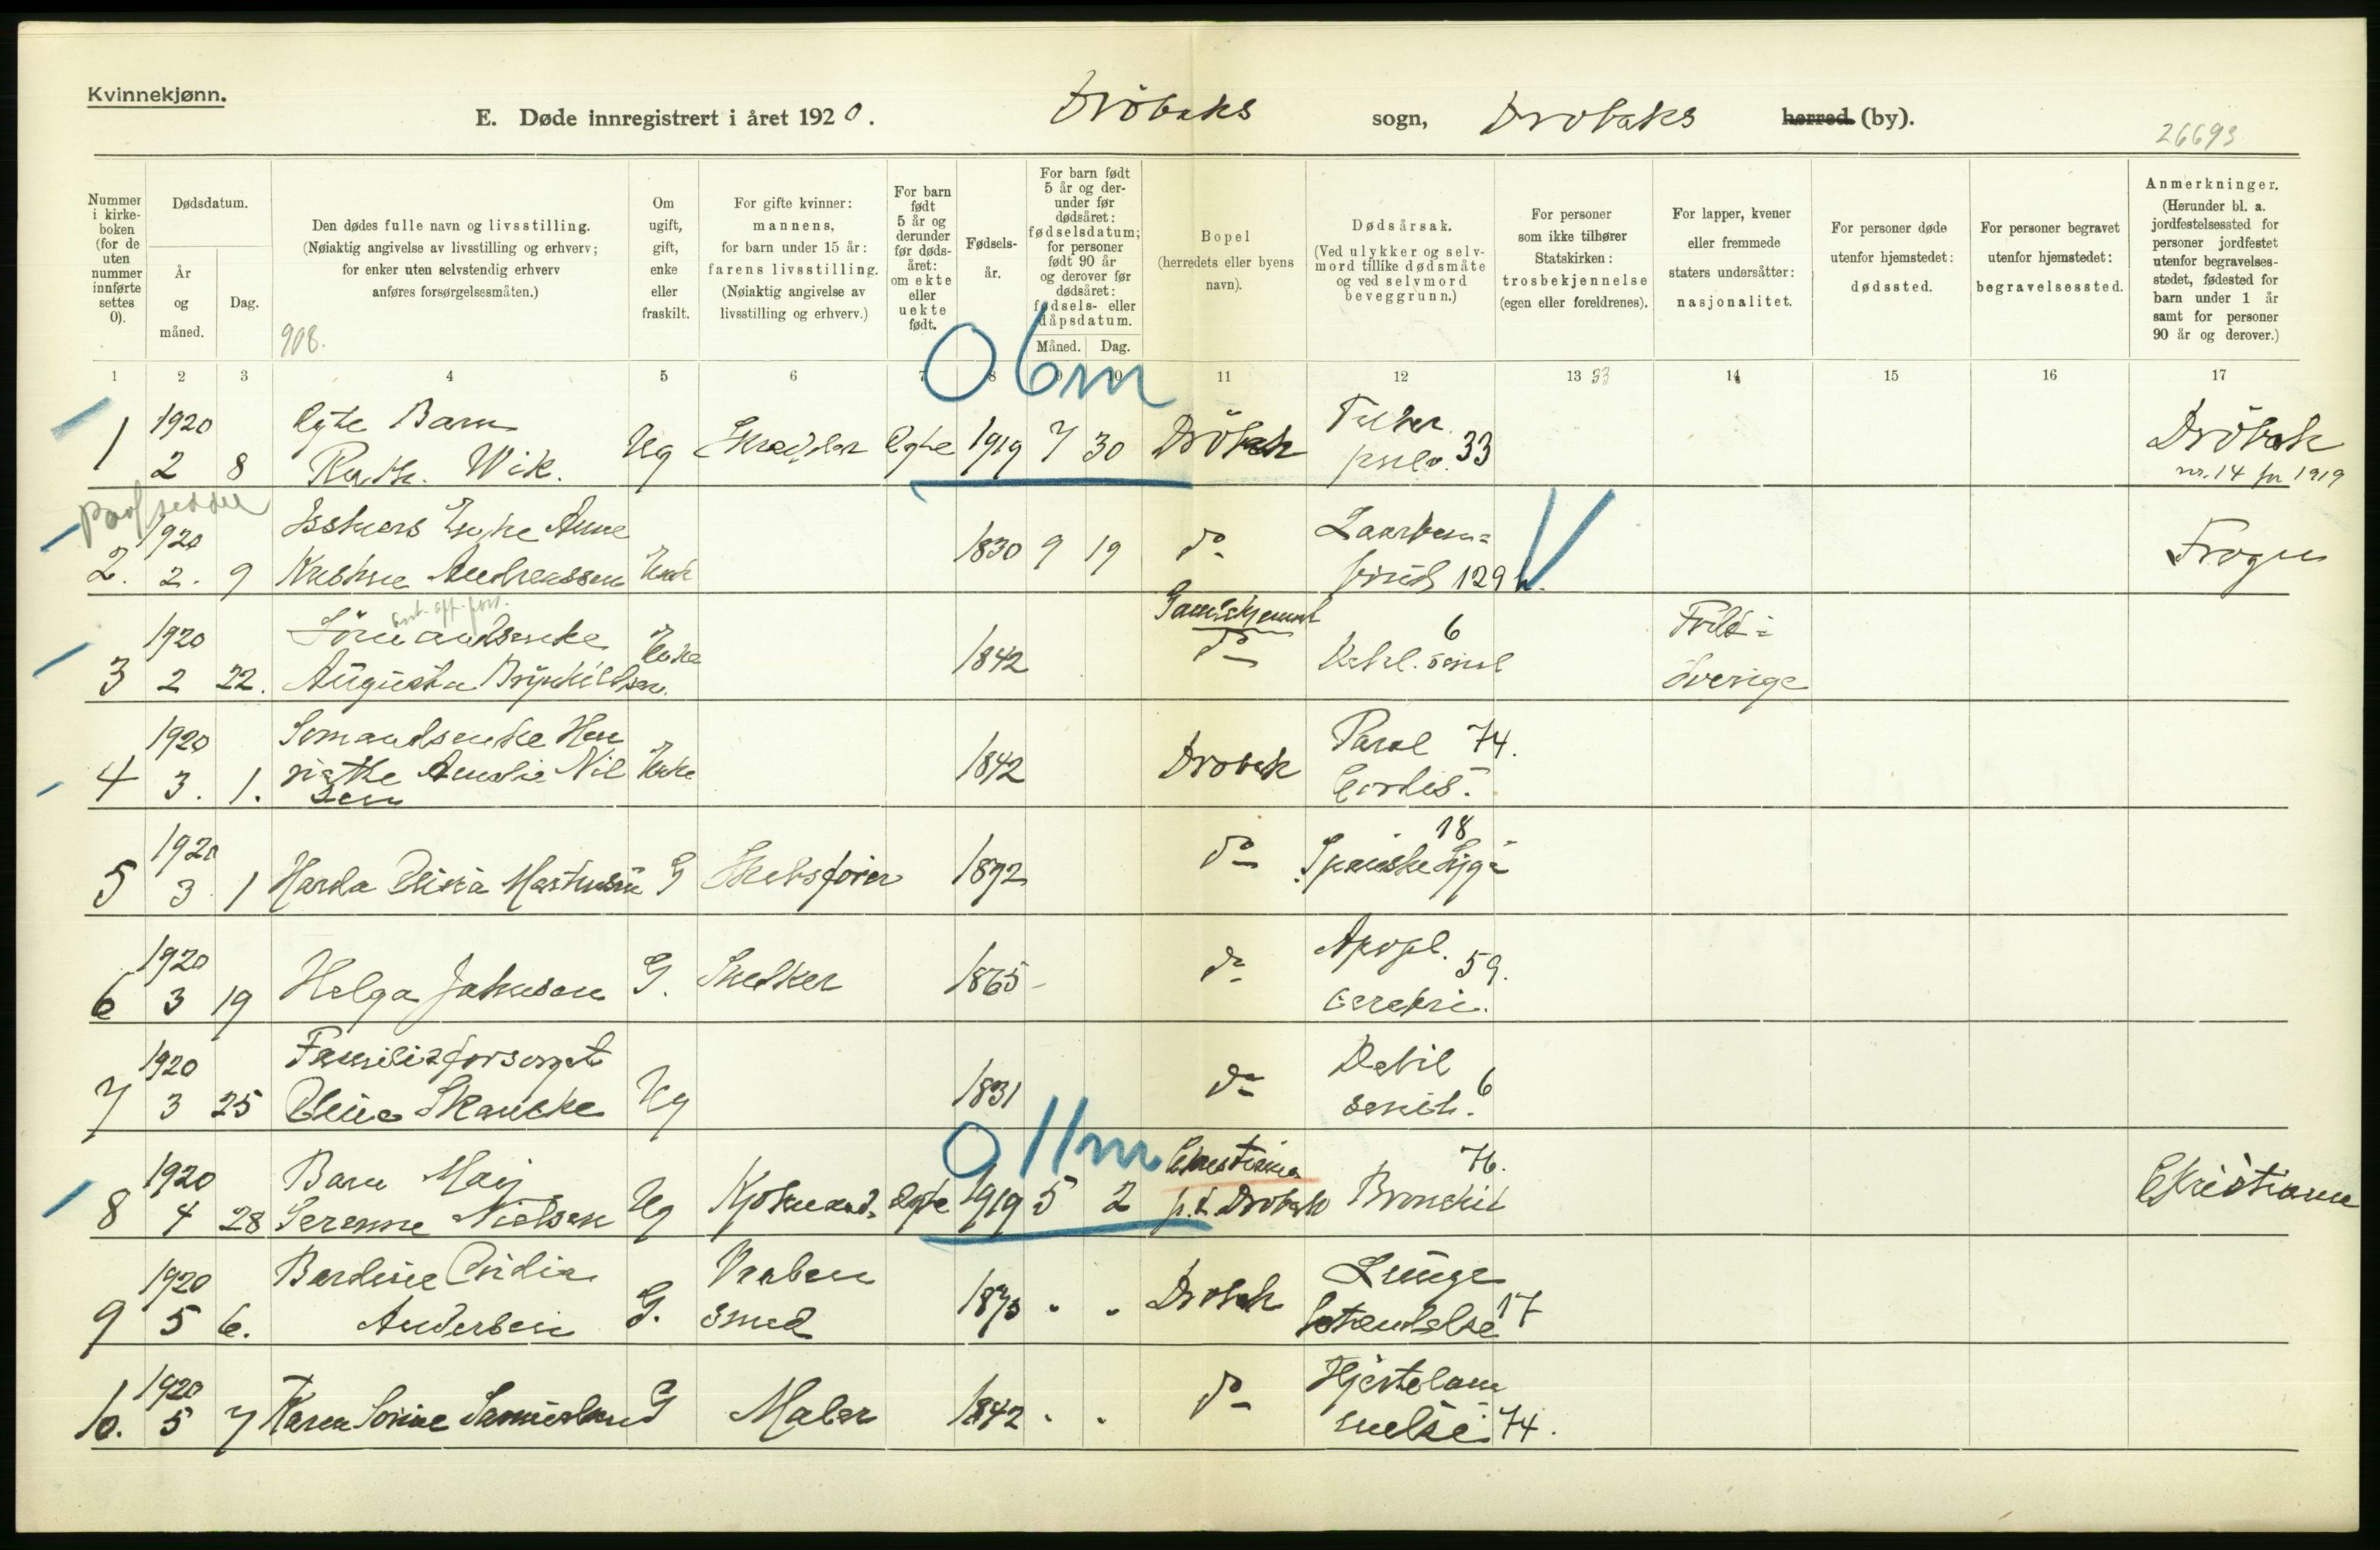 Kvinnekjønn.
E. Døde innregistrert i året 1920. Dröbaks sogn, Drobaks herred (by).
26693
Nummer i kirkeboken (for de uten nummer innførte settes 0).
Dødsdatum.
År og måned.
Dag.
Den dødes fulle navn og livsstilling.
(Nøiaktig angivelse av livsstilling og erhverv; for enker uten selvstendig erhverv anføres forsørgelsesmåten.)
908.
Om ugift, gift, enke eller fraskilt.
For gifte kvinner: mannens, for barn under 15 år: farens livsstilling.
(Nøiaktig angivelse av livsstilling og erhverv.)
For barn født 5 år og derunder før dødsåret: om ekte eller uekte født.
Fødselsår.
For barn født 5 år og derunder før dødsåret: fødselsdatum; for personer født 90 år og derover før dødsåret: fødsels- eller dåpsdatum.
Måned. Dag.
Bopel
(herredets eller byens navn).
Dødsårsak.
(Ved ulykker og selvmord tillike dødsmåte og ved selvmord beveggrunn.)
For personer som ikke tilhører Statskirken: trosbekjennelse (egen eller foreldrenes).
For lapper, kvener eller fremmede staters undersåtter: nasjonalitet.
For personer døde utenfor hjemstedet: dødssted.
For personer begravet utenfor hjemstedet: begravelsessted.
Anmerkninger.
(Herunder bl. a. jordfestelsessted for personer jordfestet utenfor begravelsesstedet, fødested for barn under 1 år samt for personer 90 år og derover.)
1 2 3 4 5 6 7 8 9 10 11 12 13 33 14 15 16 17
0 6 m
1920 Egte Barn
1 2 8 Ruth. Wik. Ug Egte 1919 7 30 Dröbak 33 Dröbak
nr. 14 for 1919
1920 Enke Anne
2. 2. 9 Andreassen Enke 1830 9 19 do 129 Frogn
Gamlehjemmet
1920 6
3 2 22. Augusta Brynhildsen. Enke 1842 do Debil. senil Sverige
1920 Sömandsenke Hen Paral 74.
4 3. 1. riette Amalie Nil Enke 1842 Drobak Cordis.
sen
1920 18
5 3. 1 G Skibsfører 1892 do Spanske Syge
1920 Apopl. 59.
6 3 19 Helga Johnsen G. Snedker 1865 do cerebri.
1920 Familieforsorget Debil
7 3 25 Skancke Ug 1831 do senil. 6
0 11 m
1920 Barn Maij Christiania 76.
8 4 28 Serenne Nielsen Ug Egte 1919 5 2 p.t. Drobak Bronchit Christiania
1920 Vaaben Lunge
9 5 6. Andersen G. smed Drobak betændelse 17
1920 Hjertelam
10. 5 7 Karen G Maler 1842 do melse 74.